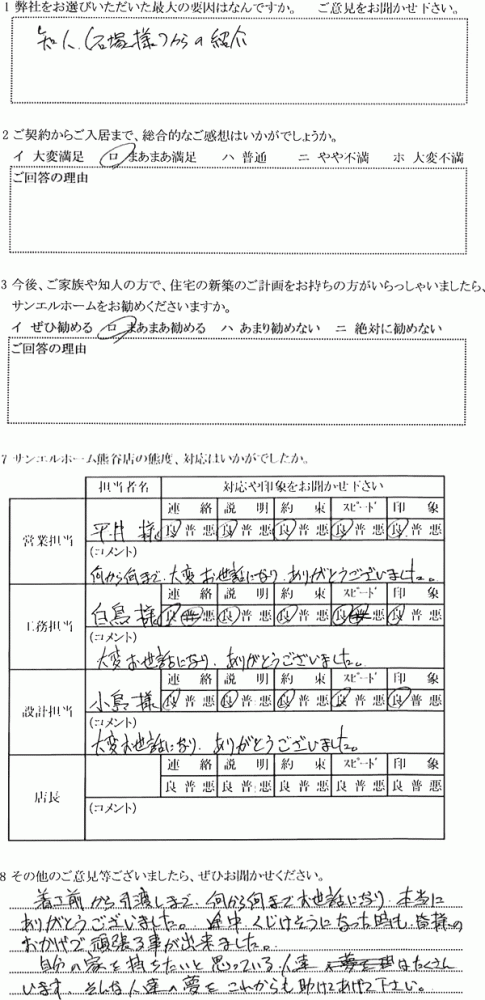 1 弊社をお選びいただいた最大の要因はなんですか。 ご意見をお聞かせ下さい。
知人(石塚様)からの紹介
2 ご契約からご入居まで、総合的なご感想はいかがでしょうか。
イ 大変満足 ロ まあまあ満足 ハ 普通 ニ やや不満 ホ 大変不満
ご回答の理由
3 今後、ご家族や知人の方で、住宅の新築のご計画をお持ちの方がいらっしゃいましたら、
サンエルホームをお勧めくださいますか。
イ ぜひ勧める ロ まあまあ勧める ハ あまり勧めない ニ 絶対に勧めない
ご回答の理由
7 サンエルホーム熊谷店の態度、対応はいかがでしたか。
担当者名 対応や印象をお聞かせ下さい
連絡 説明 約束 スピード 印象
営業担当 平井様 良普悪 良普悪 良普悪 良普悪 良普悪
(コメント)
何から何まで、大変お世話になり、ありがとうございました。
連絡 説明 約束 スピード 印象
工務担当 白鳥様 良普悪 良普悪 良普悪 良普悪 良普悪
(コメント)
大変お世話になり、ありがとうございました。
連絡 説明 約束 スピード 印象
設計担当 小島様 良普悪 良普悪 良普悪 良普悪 良普悪
(コメント)
大変お世話になり、ありがとうございました。
連絡 説明 約束 スピード 印象
店長 良普悪 良普悪 良普悪 良普悪 良普悪
(コメント)
8 その他のご意見等ございましたら、ぜひお聞かせください。
着工前から引渡しまで、何から何までお世話になり、本当に
ありがとうございました。 途中くじけそうになった時も、皆様の
おかげで頑張る事が出来ました。
自分の家を持ちたいと思っている人達はたくさん
います。そんな人達の夢をこれからも助けてあげて下さい。